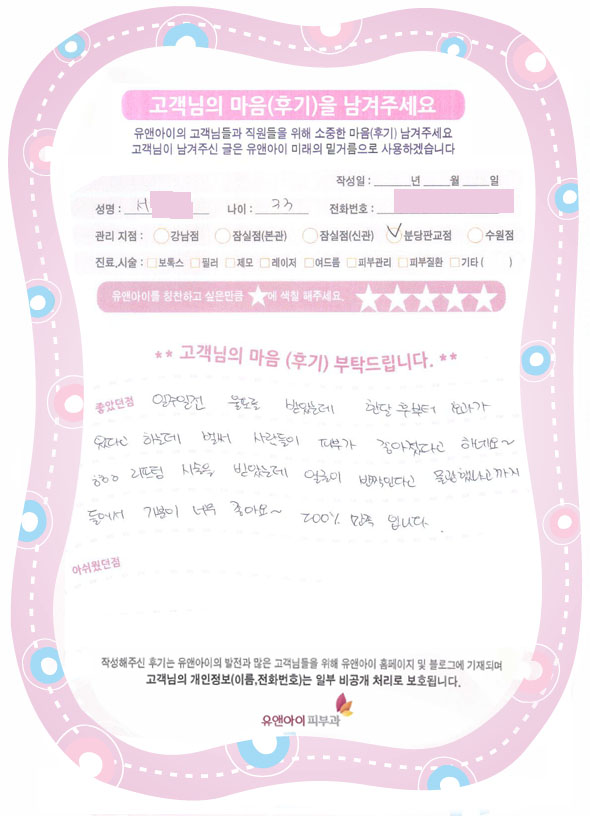 고객님의 마음(후기)을 남겨주세요
유앤아이의 고객님들과 직원들을 위해 소중한 마음(후기) 남겨주세요
고객님이 남겨주신 글은 유앤아이 미래의 밑거름으로 사용하겠습니다
작성일 : ______년 ____월 ____일
성명 : 서 나이 : 33 전화번호 :
관리 지점 : 강남점 잠실점(본관) 잠실점(신관) 분당판교점 수원점
진료,시술 : 보톡스 필러 제모 레이저 여드름 피부관리 피부질환 기타 ( )
유앤아이를 칭찬하고 싶은만큼 ★에 색칠 해주세요. ★★★★★
** 고객님의 마음 (후기) 부탁드립니다. **
좋았던점 일주일전 울도로 받았는데 한달 후부터 효과가
있다고 하는데 벌써 사람들이 피부가 좋아졌다고 하네요~
ㅎㅎㅎ 리프팅 시술을 받았는데 얼굴이 반짝인다고 물광했냐고까지
들어서 기분이 너무 좋아요~ 200% 만족 입니다.
아쉬웠던점
작성해주신 후기는 유앤아이의 발전과 많은 고객님들을 위해 유앤아이 홈페이지 및 블로그에 기재되며
고객님의 개인정보(이름,전화번호)는 일부 비공개 처리로 보호됩니다.
유앤아이피부과